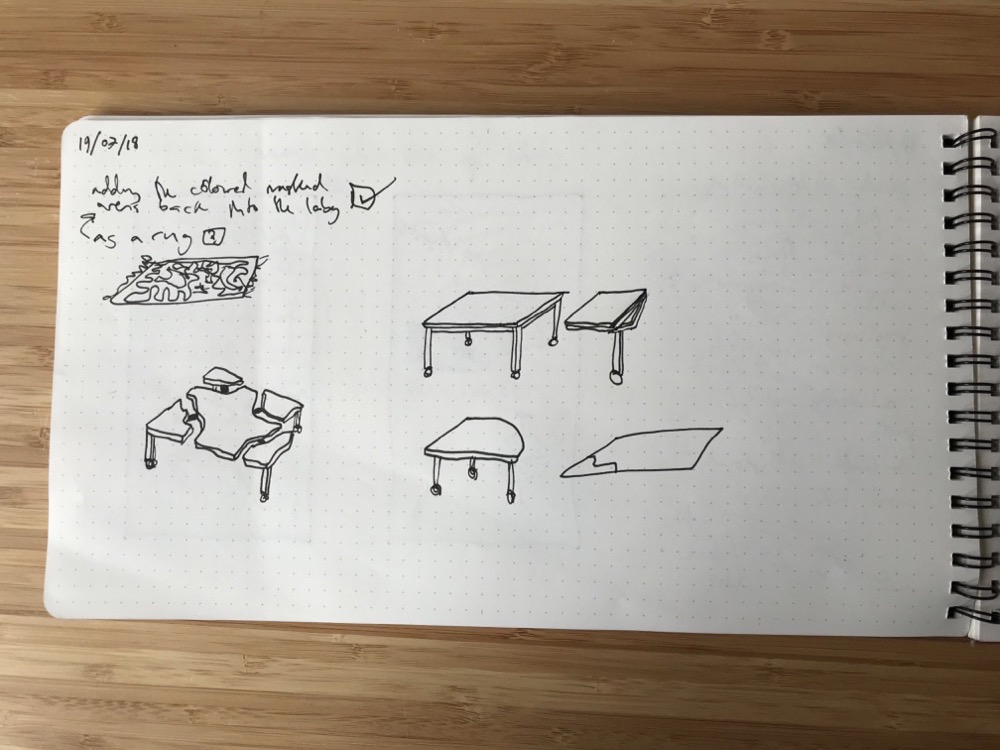 19/07/18
adding the coloured marked
areas back into the
as a rug